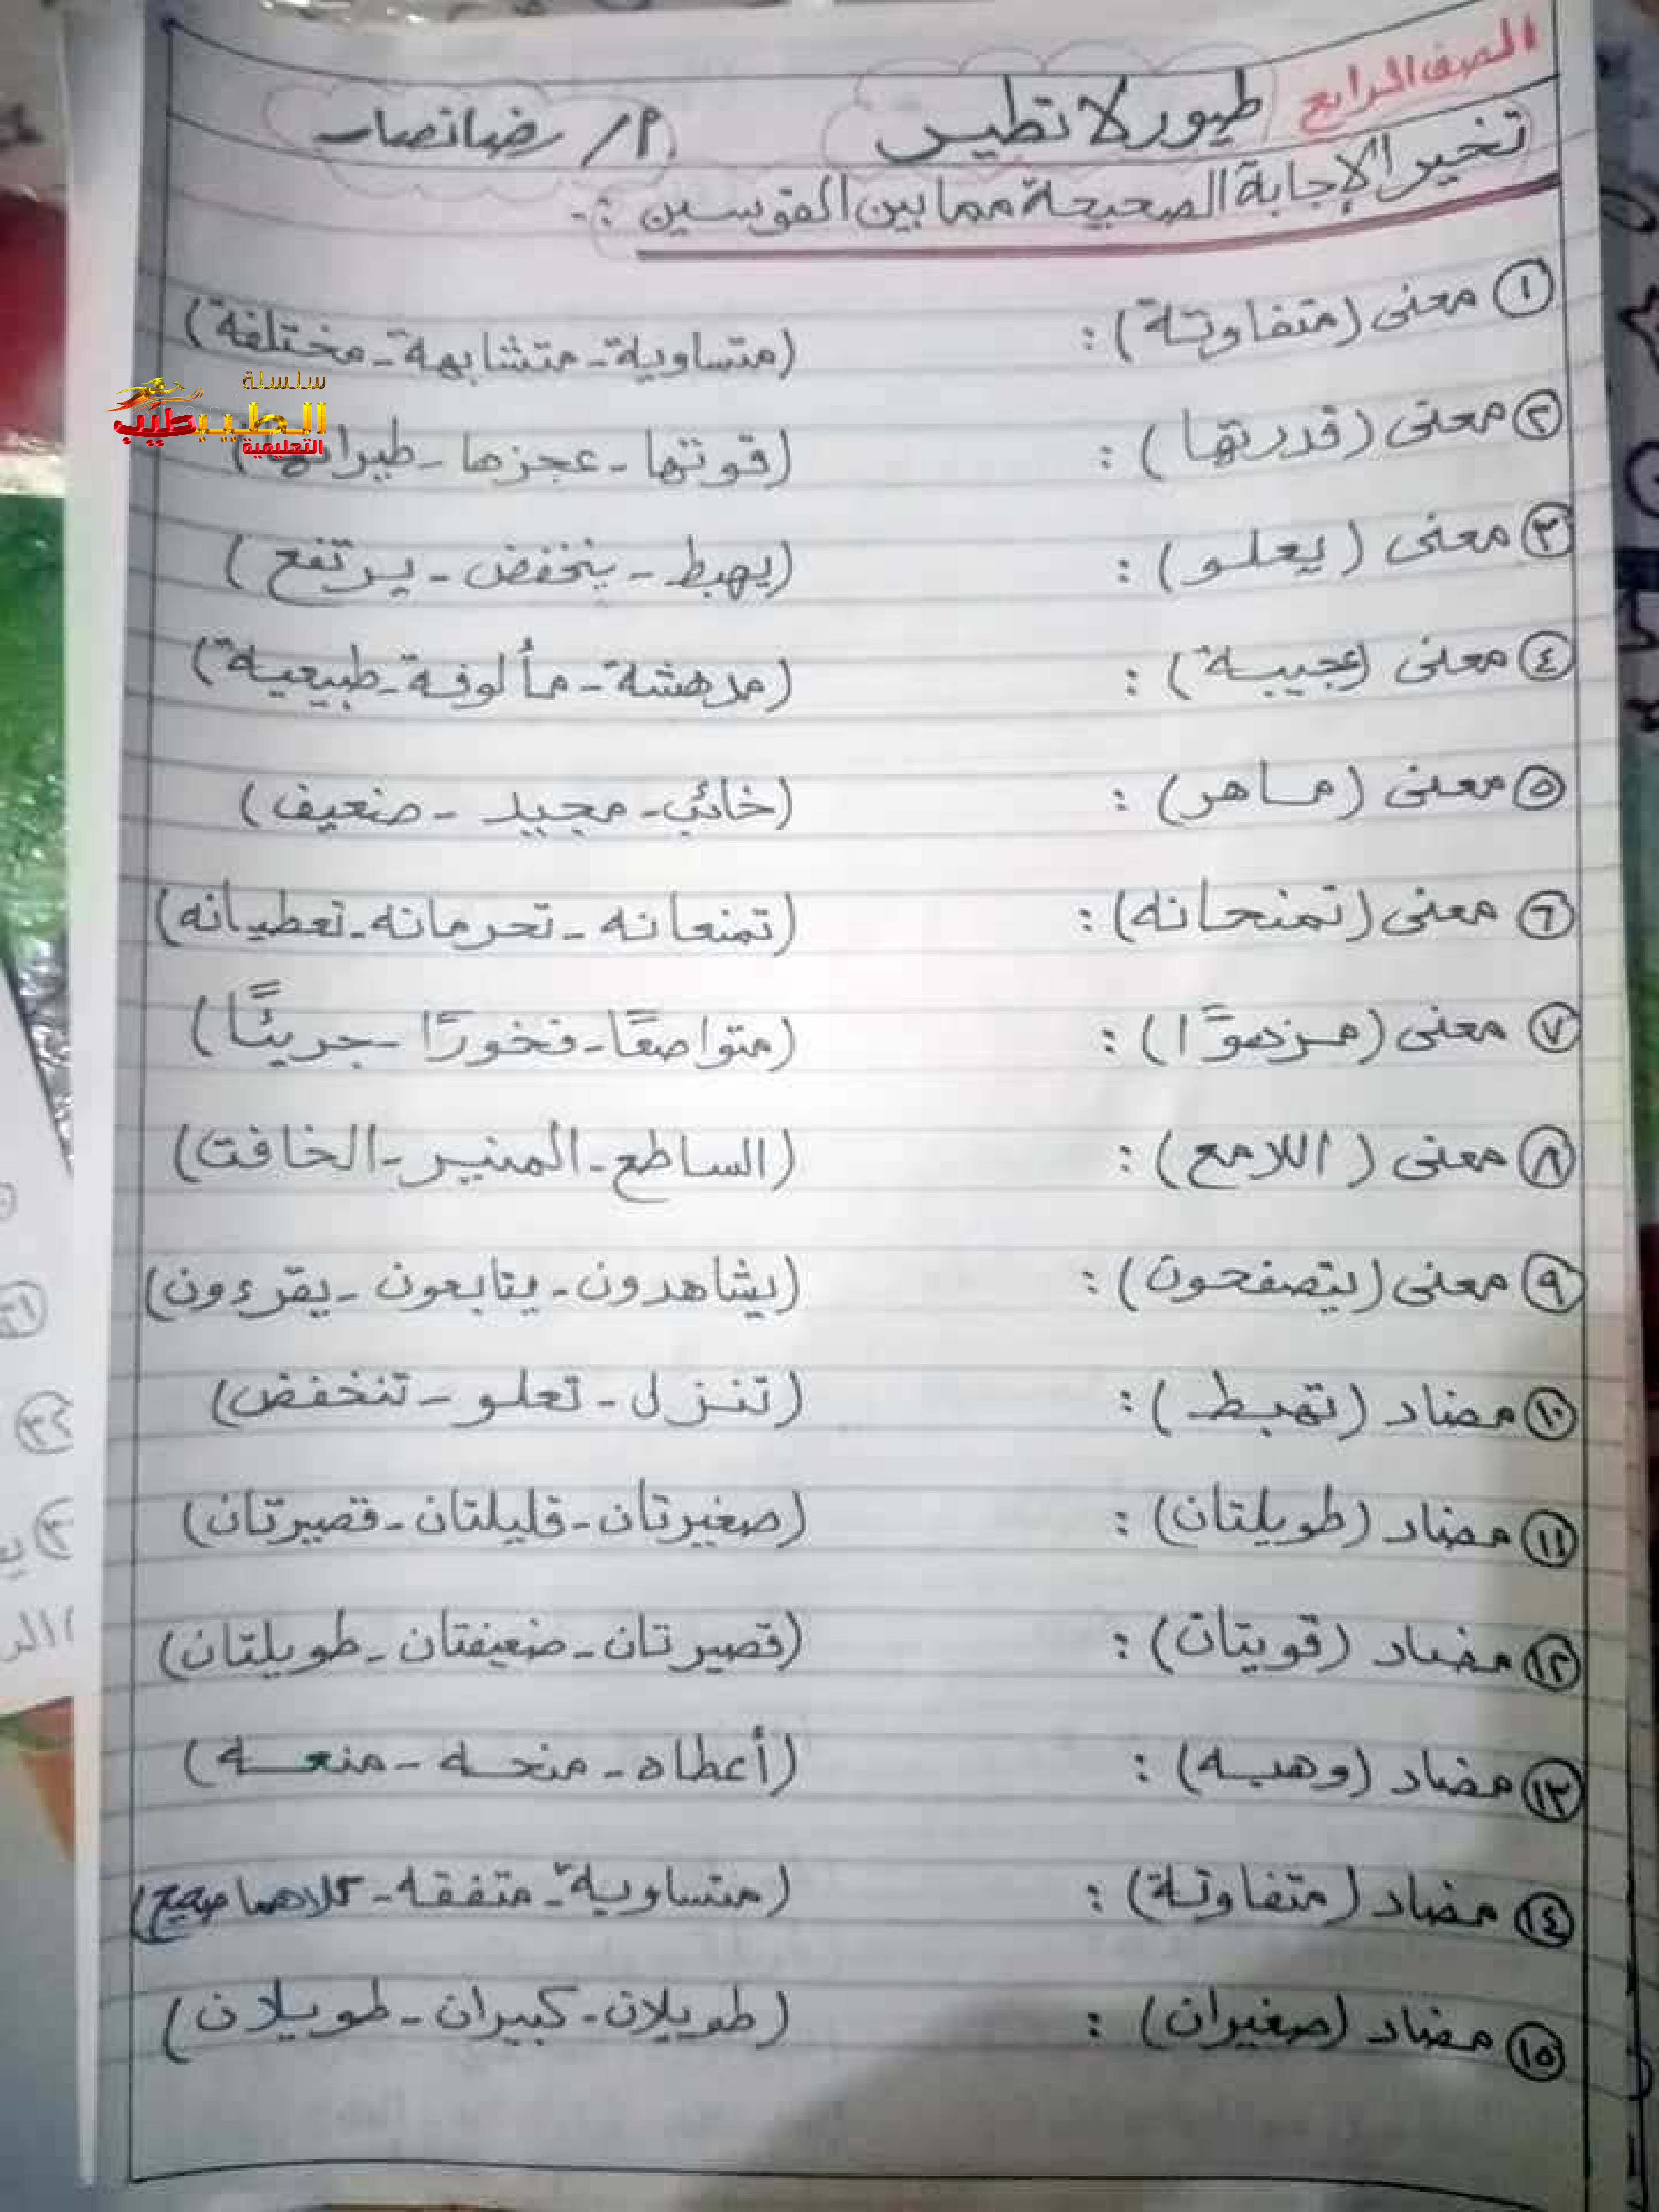 الصف الرابع
طيور لا تطير
م/ رضا نصار
تخير الإجابة الصحيحة مما بين القوسين :-
١ معنى (متفاوتة) : (متساوية - متشابهة - مختلفة)
سلسلة
الطبيب
التعليمية
٢ معنى (قدرتها) : (قوتها - عجزها - طيرانها)
٣ معنى (يعلو) : (يهبط - ينخفض - يرتفع)
٤ معنى (عجيبة) : (مدهشة - مألوفة - طبيعية)
٥ معنى (ماهر) : (خائب - مجيد - ضعيف)
٦ معنى (تمنحانه) : (تمنعانه - تحرمانه - تعطيانه)
٧ معنى (مزهوًّا) : (متواضعًا - فخورًا - جريئًا)
٨ معنى (اللامع) : (الساطع - المنير - الخافت)
٩ معنى (يتصفحون) : (يشاهدون - يتابعون - يقرءون)
١٠ مضاد (تهبط) : (تنزل - تعلو - تنخفض)
١١ مضاد (طويلتان) : (صغيرتان - قليلتان - قصيرتان)
١٢ مضاد (قويتان) : (قصيرتان - ضعيفتان - طويلتان)
١٣ مضاد (وهبه) : (أعطاه - منحه - منعه)
١٤ مضاد (متفاوتة) : (متساوية - متفقه - كلاهما صحيح)
١٥ مضاد (صغيران) : (طويلان - كبيران - طويلان)